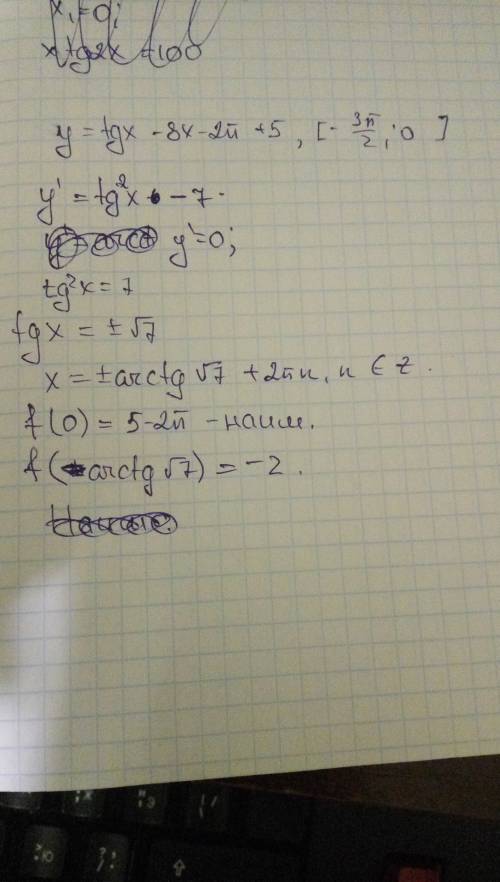 x₁=0;
x tg2x =100
y = tgx - 8x - 2π + 5, [- 3π/2 ; 0 ]
y' = tg²x - 7.
y'=0;
tg²x = 7
tg x = ± √7
x = ± arctg √7 + 2πn, n ∈ z.
f(0) = 5-2π - наим.
f(-arctg √7) = -2.